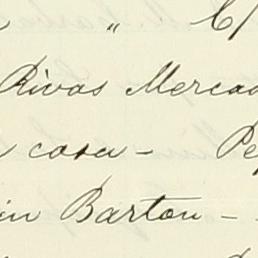 " C/
Rivas Mercad
casa - Pe
in Barton - -